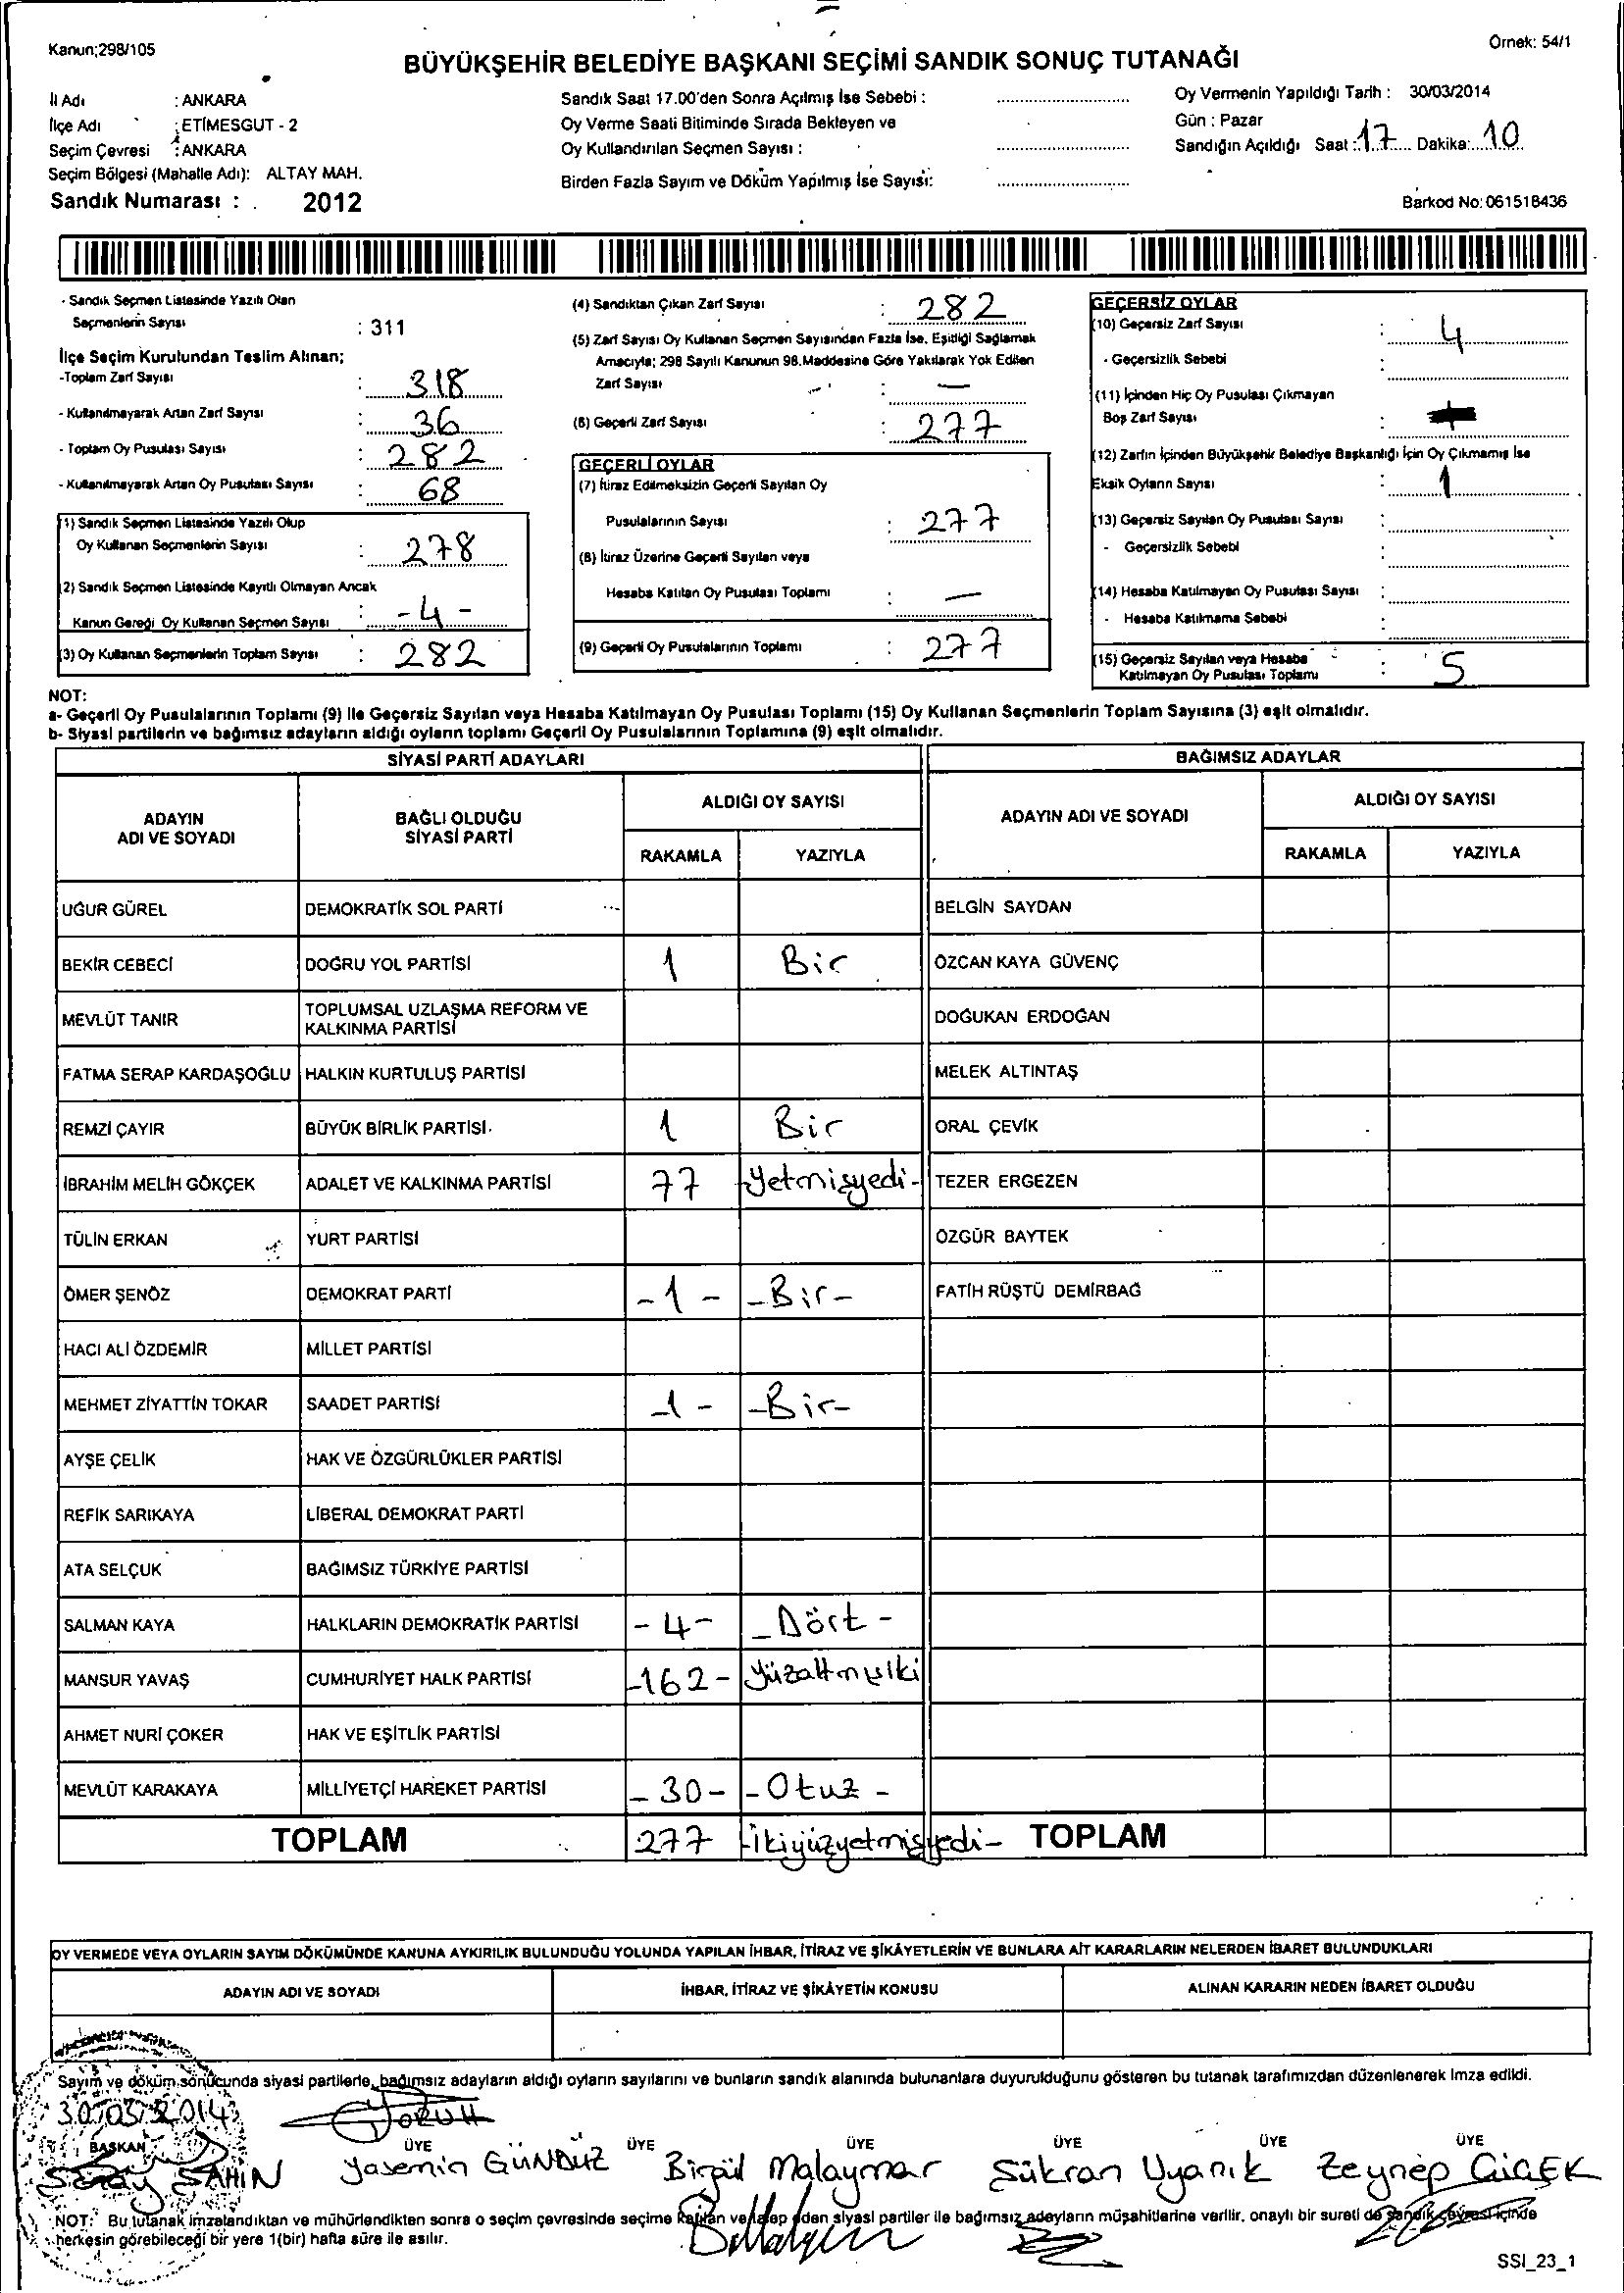 Kanun;298/105
Örnek: 54/1
BÜYÜKŞEHİR BELEDİYE BAŞKANI SEÇİMİ SANDIK SONUÇ TUTANAĞI
İl Adı : ANKARA
İlçe Adı : ETİMESGUT - 2
Seçim Çevresi : ANKARA
Seçim Bölgesi (Mahalle Adı): ALTAY MAH.
Sandık Numarası : 2012
Sandık Saat 17.00'den Sonra Açılmış İse Sebebi :
Oy Verme Saati Bitiminde Sırada Bekleyen ve
Oy Kullandırılan Seçmen Sayısı :
Birden Fazla Sayım ve Döküm Yapılmış İse Sayısı:
Oy Vermenin Yapıldığı Tarih : 30/03/2014
Gün : Pazar
Sandığın Açıldığı Saat : 17 Dakika: 10
Barkod No: 061518436
- Sandık Seçmen Listesinde Yazılı Olan
Seçmenlerin Sayısı : 311
İlçe Seçim Kurulundan Teslim Alınan;
-Toplam Zarf Sayısı : 318
- Kullanılmayarak Artan Zarf Sayısı : 36
- Toplam Oy Pusulası Sayısı : 282
- Kullanılmayarak Artan Oy Pusulası Sayısı : 68
(1) Sandık Seçmen Listesinde Yazılı Olup
Oy Kullanan Seçmenlerin Sayısı : 278
(2) Sandık Seçmen Listesinde Kayıtlı Olmayan Ancak
Kanun Gereği Oy Kullanan Seçmen Sayısı : - 4 -
(3) Oy Kullanan Seçmenlerin Toplam Sayısı : 282
(4) Sandıktan Çıkan Zarf Sayısı : 282
(5) Zarf Sayısı Oy Kullanan Seçmen Sayısından Fazla İse, Eşitliği Sağlamak
Amacıyla; 298 Sayılı Kanunun 98.Maddesine Göre Yakılarak Yok Edilen
Zarf Sayısı : —
(6) Geçerli Zarf Sayısı : 277
GEÇERLİ OYLAR
(7) İtiraz Edilmeksizin Geçerli Sayılan Oy
Pusulalarının Sayısı : 277
(8) İtiraz Üzerine Geçerli Sayılan veya
Hesaba Katılan Oy Pusulası Toplamı : —
(9) Geçerli Oy Pusulalarının Toplamı : 277
GEÇERSİZ OYLAR
(10) Geçersiz Zarf Sayısı : 4
- Geçersizlik Sebebi :
(11) İçinden Hiç Oy Pusulası Çıkmayan
Boş Zarf Sayısı :
(12) Zarfın İçinden Büyükşehir Belediye Başkanlığı İçin Oy Çıkmamış İse
Eksik Oyların Sayısı : 1
(13) Geçersiz Sayılan Oy Pusulası Sayısı :
- Geçersizlik Sebebi :
(14) Hesaba Katılmayan Oy Pusulası Sayısı :
- Hesaba Katılmama Sebebi :
(15) Geçersiz Sayılan veya Hesaba
Katılmayan Oy Pusulası Toplamı : 5
NOT:
a- Geçerli Oy Pusulalarının Toplamı (9) ile Geçersiz Sayılan veya Hesaba Katılmayan Oy Pusulası Toplamı (15) Oy Kullanan Seçmenlerin Toplam Sayısına (3) eşit olmalıdır.
b- Siyasi partilerin ve bağımsız adayların aldığı oyların toplamı Geçerli Oy Pusulalarının Toplamına (9) eşit olmalıdır.
SİYASİ PARTİ ADAYLARI BAĞIMSIZ ADAYLAR
ADAYIN ADI VE SOYADI BAĞLI OLDUĞU SİYASİ PARTİ ALDIĞI OY SAYISI ADAYIN ADI VE SOYADI ALDIĞI OY SAYISI
RAKAMLA YAZIYLA RAKAMLA YAZIYLA
UĞUR GÜREL DEMOKRATİK SOL PARTİ BELGİN SAYDAN
BEKİR CEBECİ DOĞRU YOL PARTİSİ 1 Bir ÖZCAN KAYA GÜVENÇ
MEVLÜT TANIR TOPLUMSAL UZLAŞMA REFORM VE KALKINMA PARTİSİ DOĞUKAN ERDOĞAN
FATMA SERAP KARDAŞOĞLU HALKIN KURTULUŞ PARTİSİ MELEK ALTINTAŞ
REMZİ ÇAYIR BÜYÜK BİRLİK PARTİSİ 1 Bir ORAL ÇEVİK
İBRAHİM MELİH GÖKÇEK ADALET VE KALKINMA PARTİSİ 77 -Yetmişyedi- TEZER ERGEZEN
TÜLİN ERKAN YURT PARTİSİ ÖZGÜR BAYTEK
ÖMER ŞENÖZ DEMOKRAT PARTİ - 1 - - Bir - FATİH RÜŞTÜ DEMİRBAĞ
HACI ALİ ÖZDEMİR MİLLET PARTİSİ
MEHMET ZİYATTİN TOKAR SAADET PARTİSİ - 1 - - Bir -
AYŞE ÇELİK HAK VE ÖZGÜRLÜKLER PARTİSİ
REFİK SARIKAYA LİBERAL DEMOKRAT PARTİ
ATA SELÇUK BAĞIMSIZ TÜRKİYE PARTİSİ
SALMAN KAYA HALKLARIN DEMOKRATİK PARTİSİ - 4 - - Dört -
MANSUR YAVAŞ CUMHURİYET HALK PARTİSİ -162- Yüzaltmışiki
AHMET NURİ ÇOKER HAK VE EŞİTLİK PARTİSİ
MEVLÜT KARAKAYA MİLLİYETÇİ HAREKET PARTİSİ - 30 - - Otuz -
TOPLAM 277 -İkiyüzyetmişyedi- TOPLAM
OY VERMEDE VEYA OYLARIN SAYIM DÖKÜMÜNDE KANUNA AYKIRILIK BULUNDUĞU YOLUNDA YAPILAN İHBAR, İTİRAZ VE ŞİKÂYETLERİN VE BUNLARA AİT KARARLARIN NELERDEN İBARET BULUNDUKLARI
ADAYIN ADI VE SOYADI İHBAR, İTİRAZ VE ŞİKÂYETİN KONUSU ALINAN KARARIN NEDEN İBARET OLDUĞU
Sayım ve döküm sonucunda siyasi partilerle, bağımsız adayların aldığı oyların sayılarını ve bunların sandık alanında bulunanlara duyurulduğunu gösteren bu tutanak tarafımızdan düzenlenerek imza edildi.
30/03/2014
BAŞKAN ÜYE ÜYE ÜYE ÜYE ÜYE ÜYE
ŞAHİN Yasemin GÜNDÜZ Birgül Malaymar Şükran Uyanık Zeynep ÇİÇEK
NOT: Bu tutanak imzalandıktan ve mühürlendikten sonra o seçim çevresinde seçime katılan ve talep eden siyasi partiler ile bağımsız adayların müşahitlerine verilir, onaylı bir sureti de sandık çevresi içinde
herkesin görebileceği bir yere 1(bir) hafta süre ile asılır.
SSI_23_1